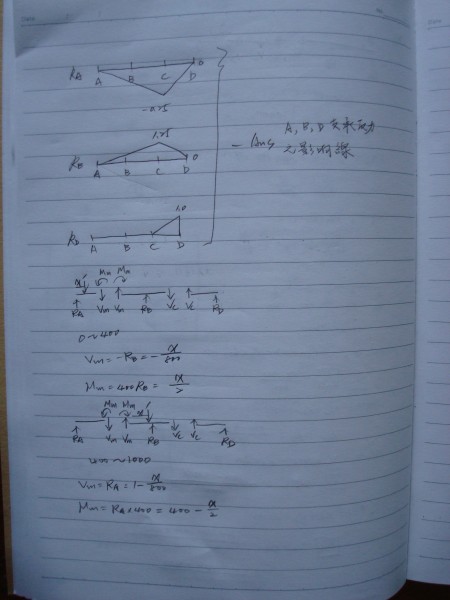 RA
A B C D
0
-0.25
1.25
RB
A B C D
0
- Ans A, B, D 支承反力
之影响線
1.0
RD
A B C D
x Mm Mm
RA Vm Vm RB Vc Vc RD
0~400
Vm = -RB = - x/800
Mm = 400RB = x/2
Mm Mm x
RA Vm Vm RB Vc Vc RD
400~1000
Vm = RA = 1 - x/800
Mm = RA×400 = 400 - x/2